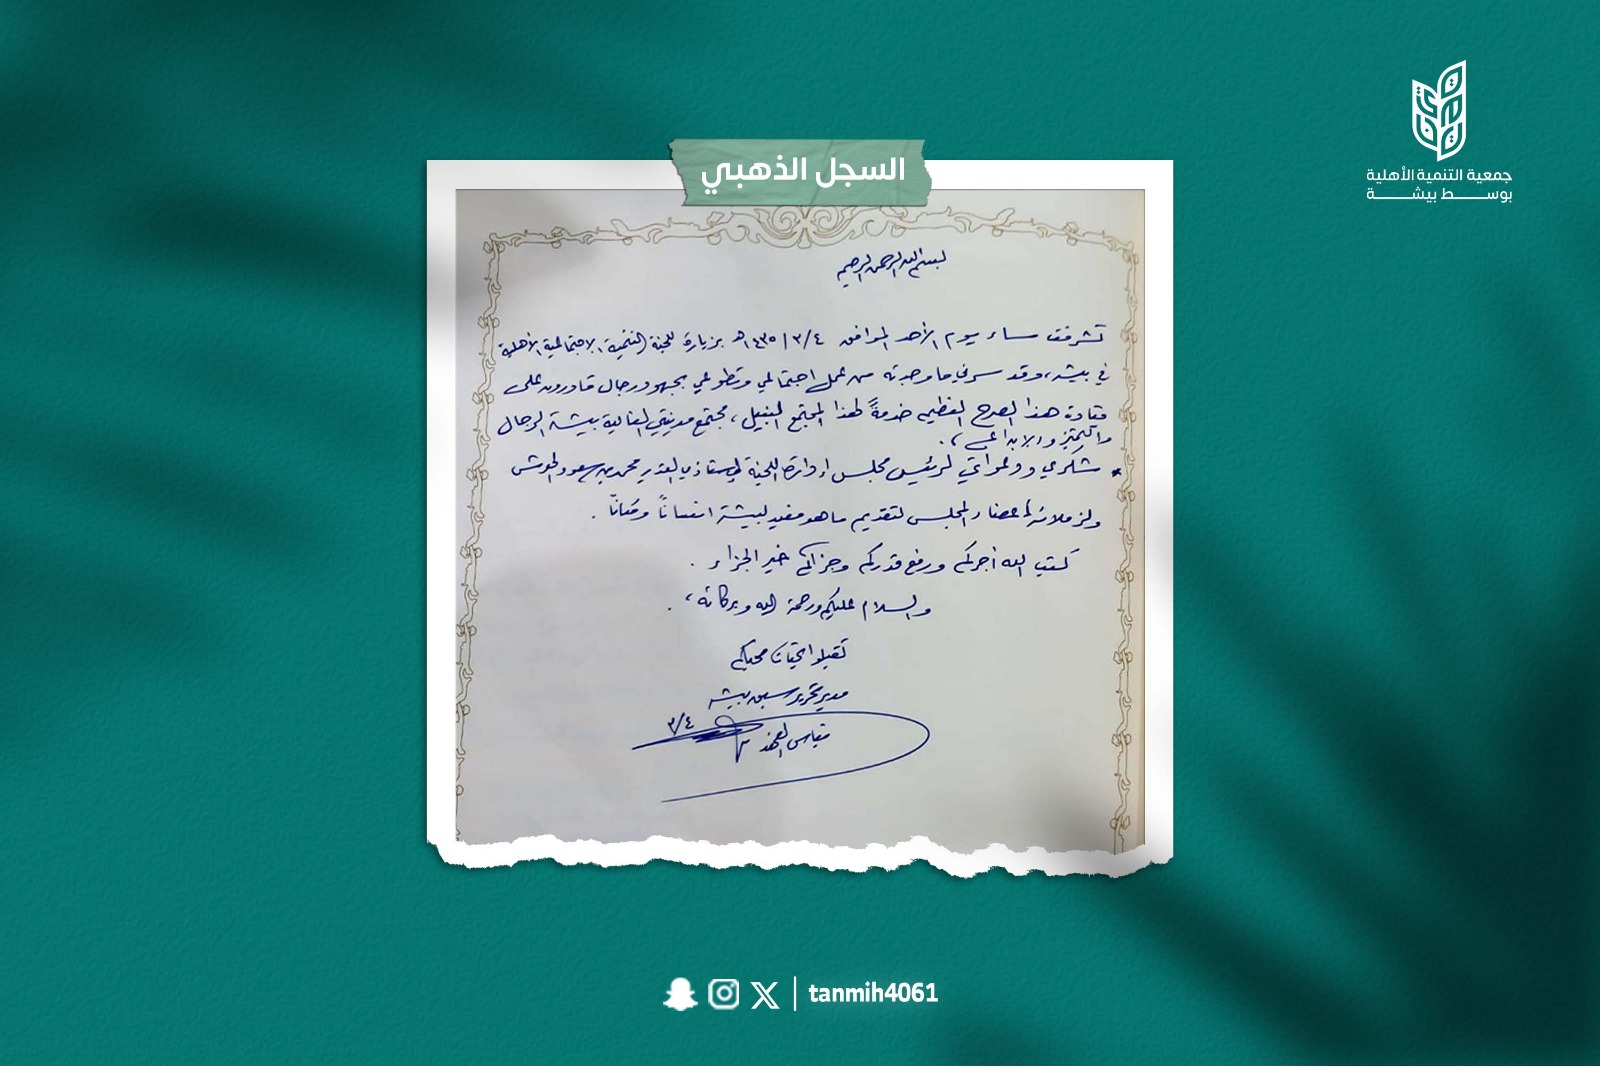 جمعية التنمية الأهلية
بوسط بيشة
السجل الذهبي
بسم الله الرحمن الرحيم
تشرفت مساء يوم الأحد الموافق ٣/٤/ ١٤٣٥هـ بزيارة لجنة التنمية الاجتماعية الأهلية
في بيشة، وقد سرني ما وجدته من عمل اجتماعي وتطوعي بجهود رجال قادرون على
قيادة هذا الصرح العظيم خدمةً لهذا المجتمع النبيل، مجتمع مدينتي الغالية بيشة الرجال
والتميز والإبداع،.
* شكري ودعواتي لرئيس مجلس إدارة اللجنة لأستاذي القدير محمد بن سعود
ولزملائه أعضاء المجلس لتقديم ما هو مفيد لبيشة انساناً ومكاناً.
كتب الله أجركم ورفع قدركم وجزاكم خير الجزاء.
والسلام عليكم ورحمة الله وبركاته،.
تقبلوا تحيات محبكم
مدير تحرير سبق بيشة
٣/٤
tanmih4061